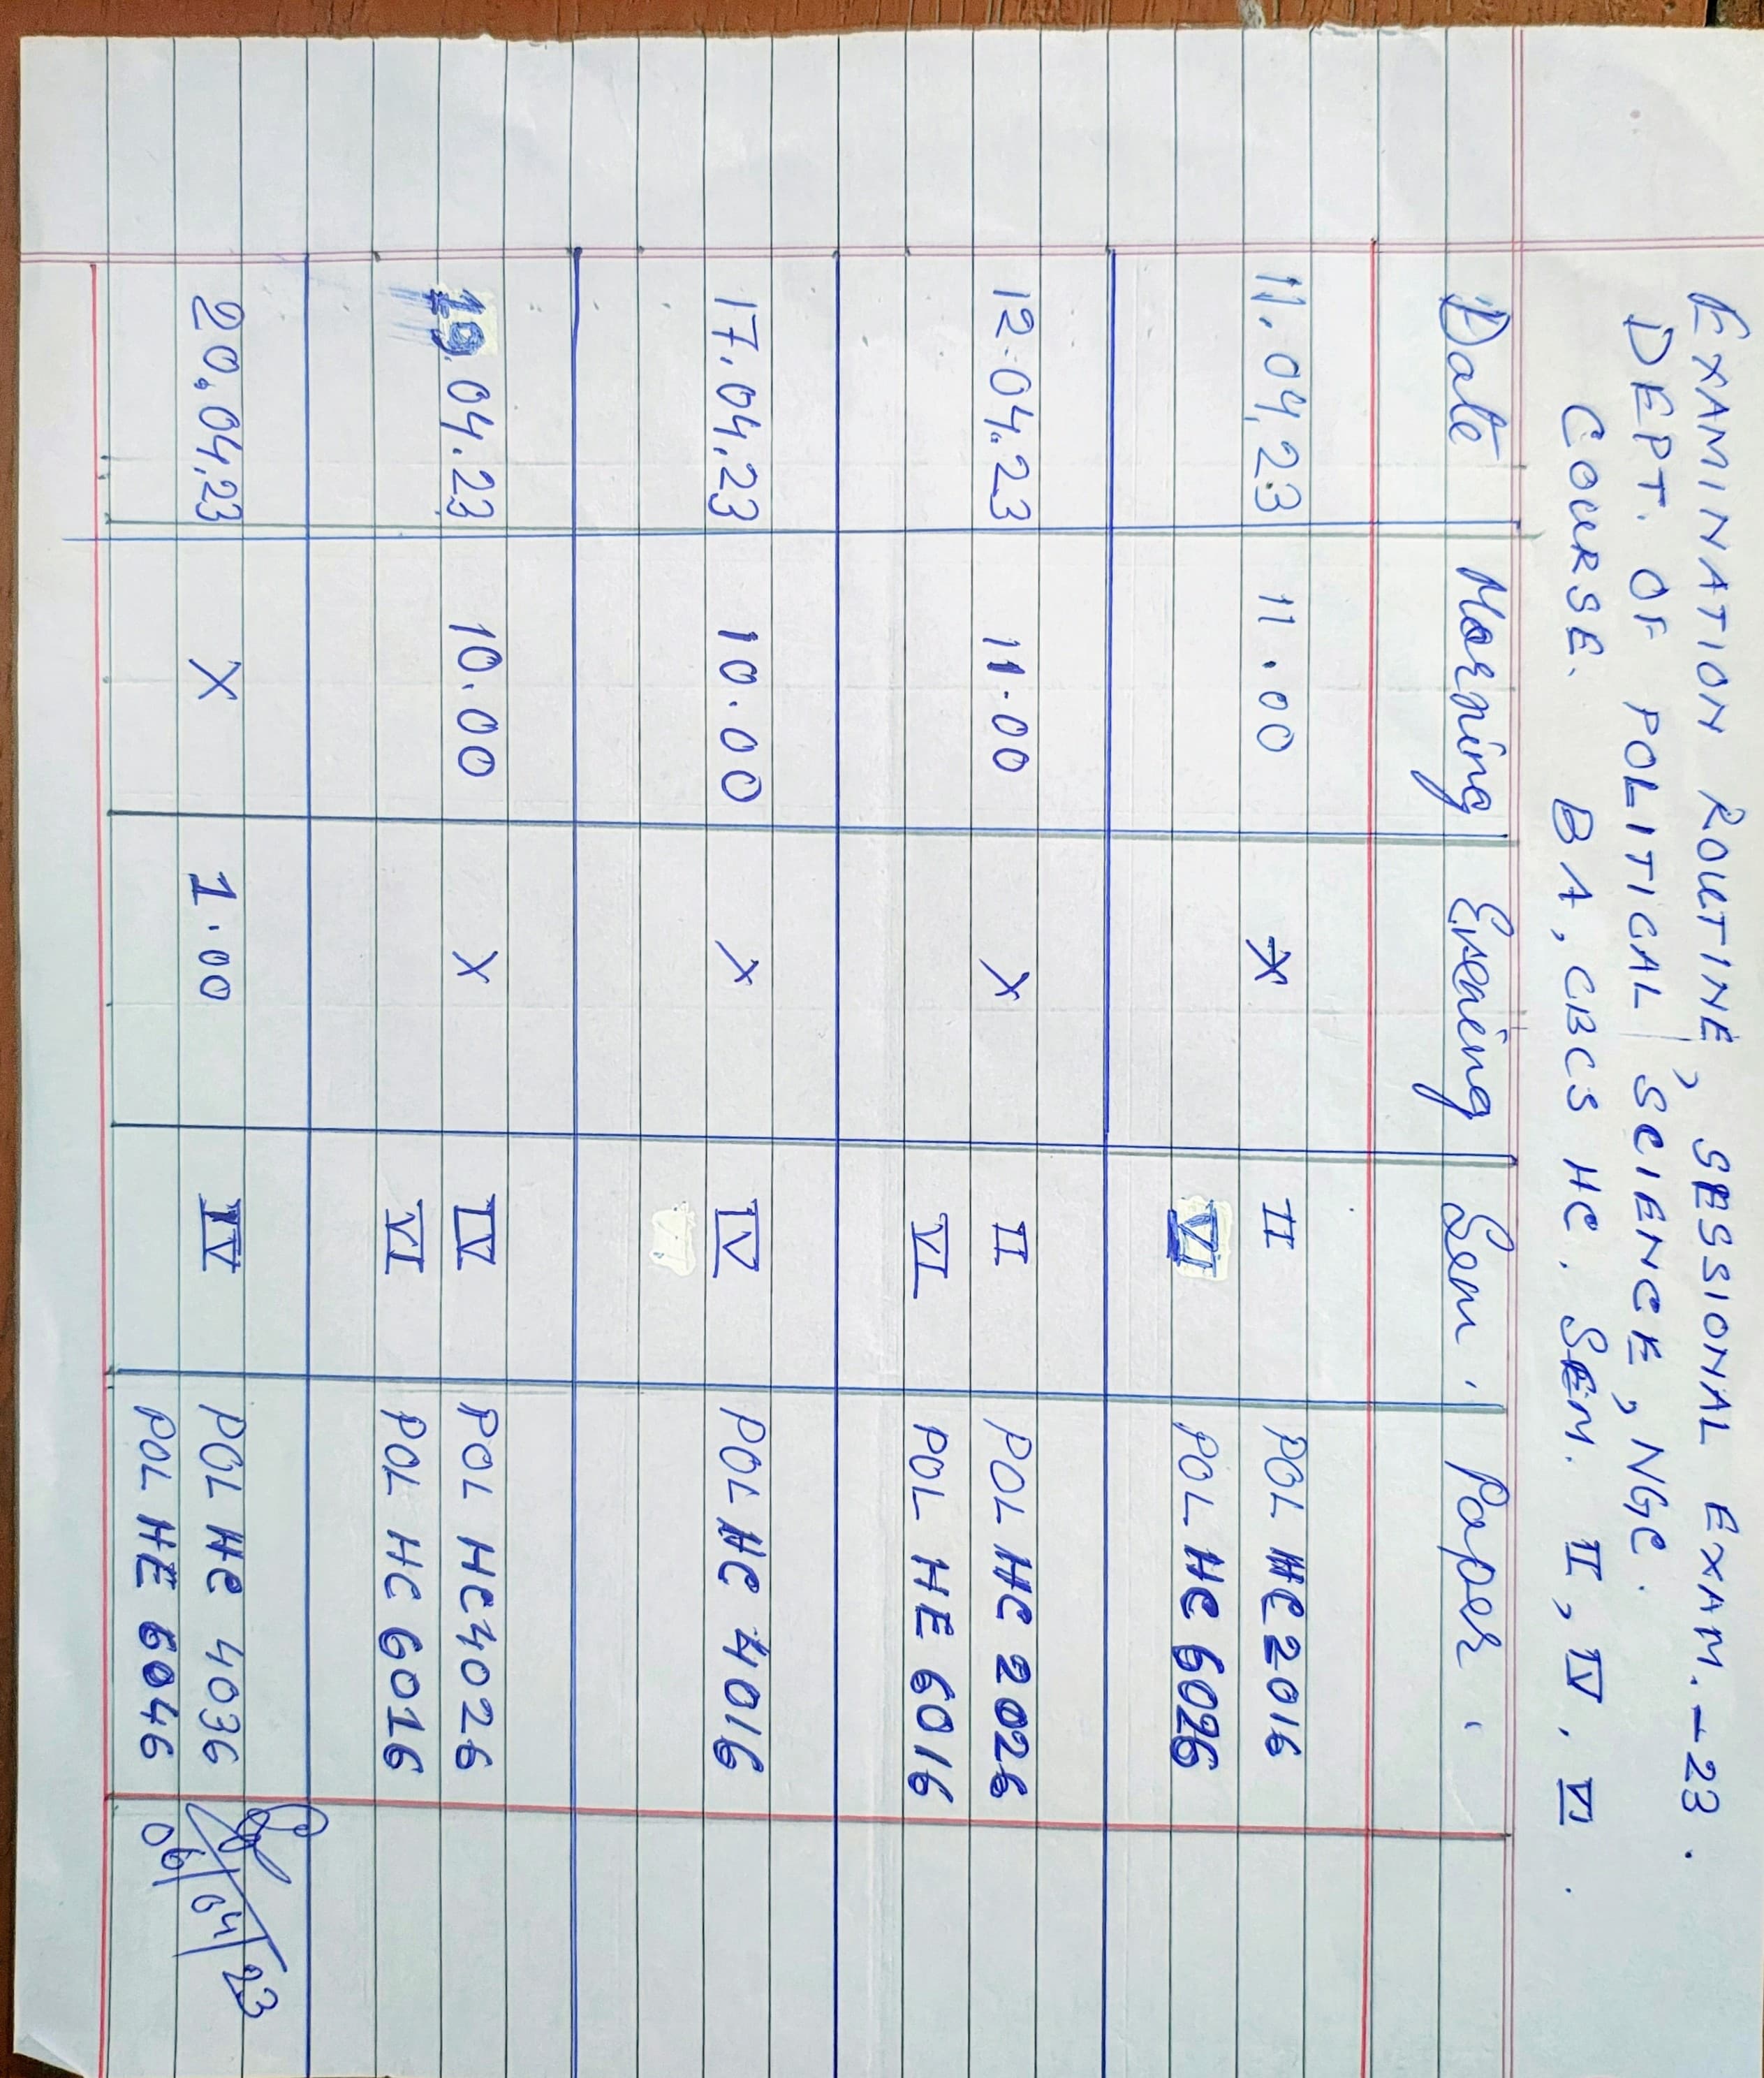 EXAMINATION ROUTINE, SESSIONAL EXAM.-23.
DEPT. OF POLITICAL SCIENCE, NGC.
COURSE. BA, CBCS HC. SEM. II, IV, VI.
Date Morning Evening Sem. Paper.
11.04.23 11.00 X II POL HC 2016
VI POL HC 6026
12.04.23 11.00 X II POL HC 2026
VI POL HE 6016
17.04.23 10.00 X IV POL HC 4016
19.04.23 10.00 X IV POL HC 4026
VI POL HC 6016
20.04.23 X 1.00 IV POL HC 4036
POL HE 6046
06/04/23